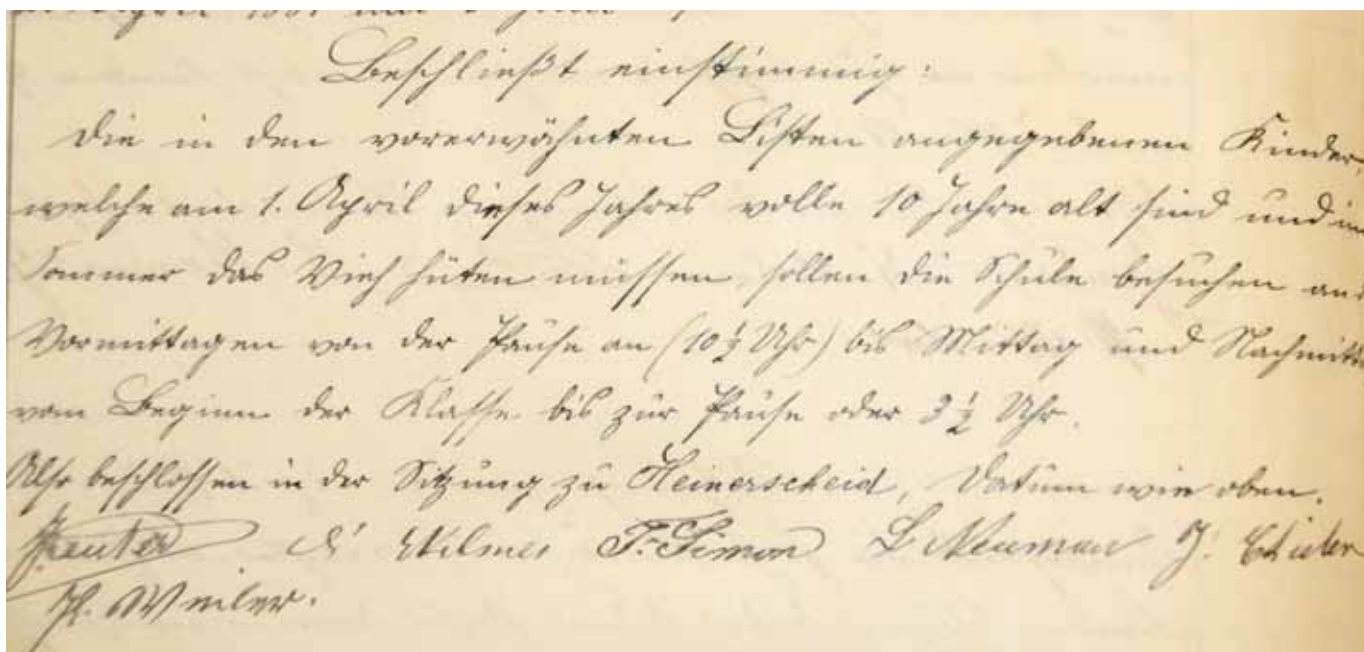 Beschließt einstimmig:
Die in den vorerwähnten Listen angegebenen Kinder,
welche am 1. April dieses Jahres volle 10 Jahre alt sind und im
Sommer das Vieh hüten müssen, sollen die Schule besuchen an
Vormittagen von der Pause an (10½ Uhr) bis Mittag und Nachmitta
vom Beginn der Klasse bis zur Pause oder 3½ Uhr.
Also beschlossen in der Sitzung zu Heinerscheid, Datum wie oben.
Reuter Wilmes F. Simon L Neuman J.
H. Weiler.